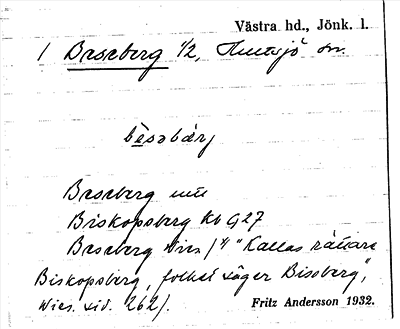 Västra hd., Jönk. l.
1 Beseberg 1/2, Hultsjö sn.
bèsəbärj
Beseberg
Biskopsberg kb 927
Beseberg Wies. /"Kallas rättare
Biskopsberg, folket säger Bissberg",
Wies. sid. 262/.
Fritz Andersson 1932.